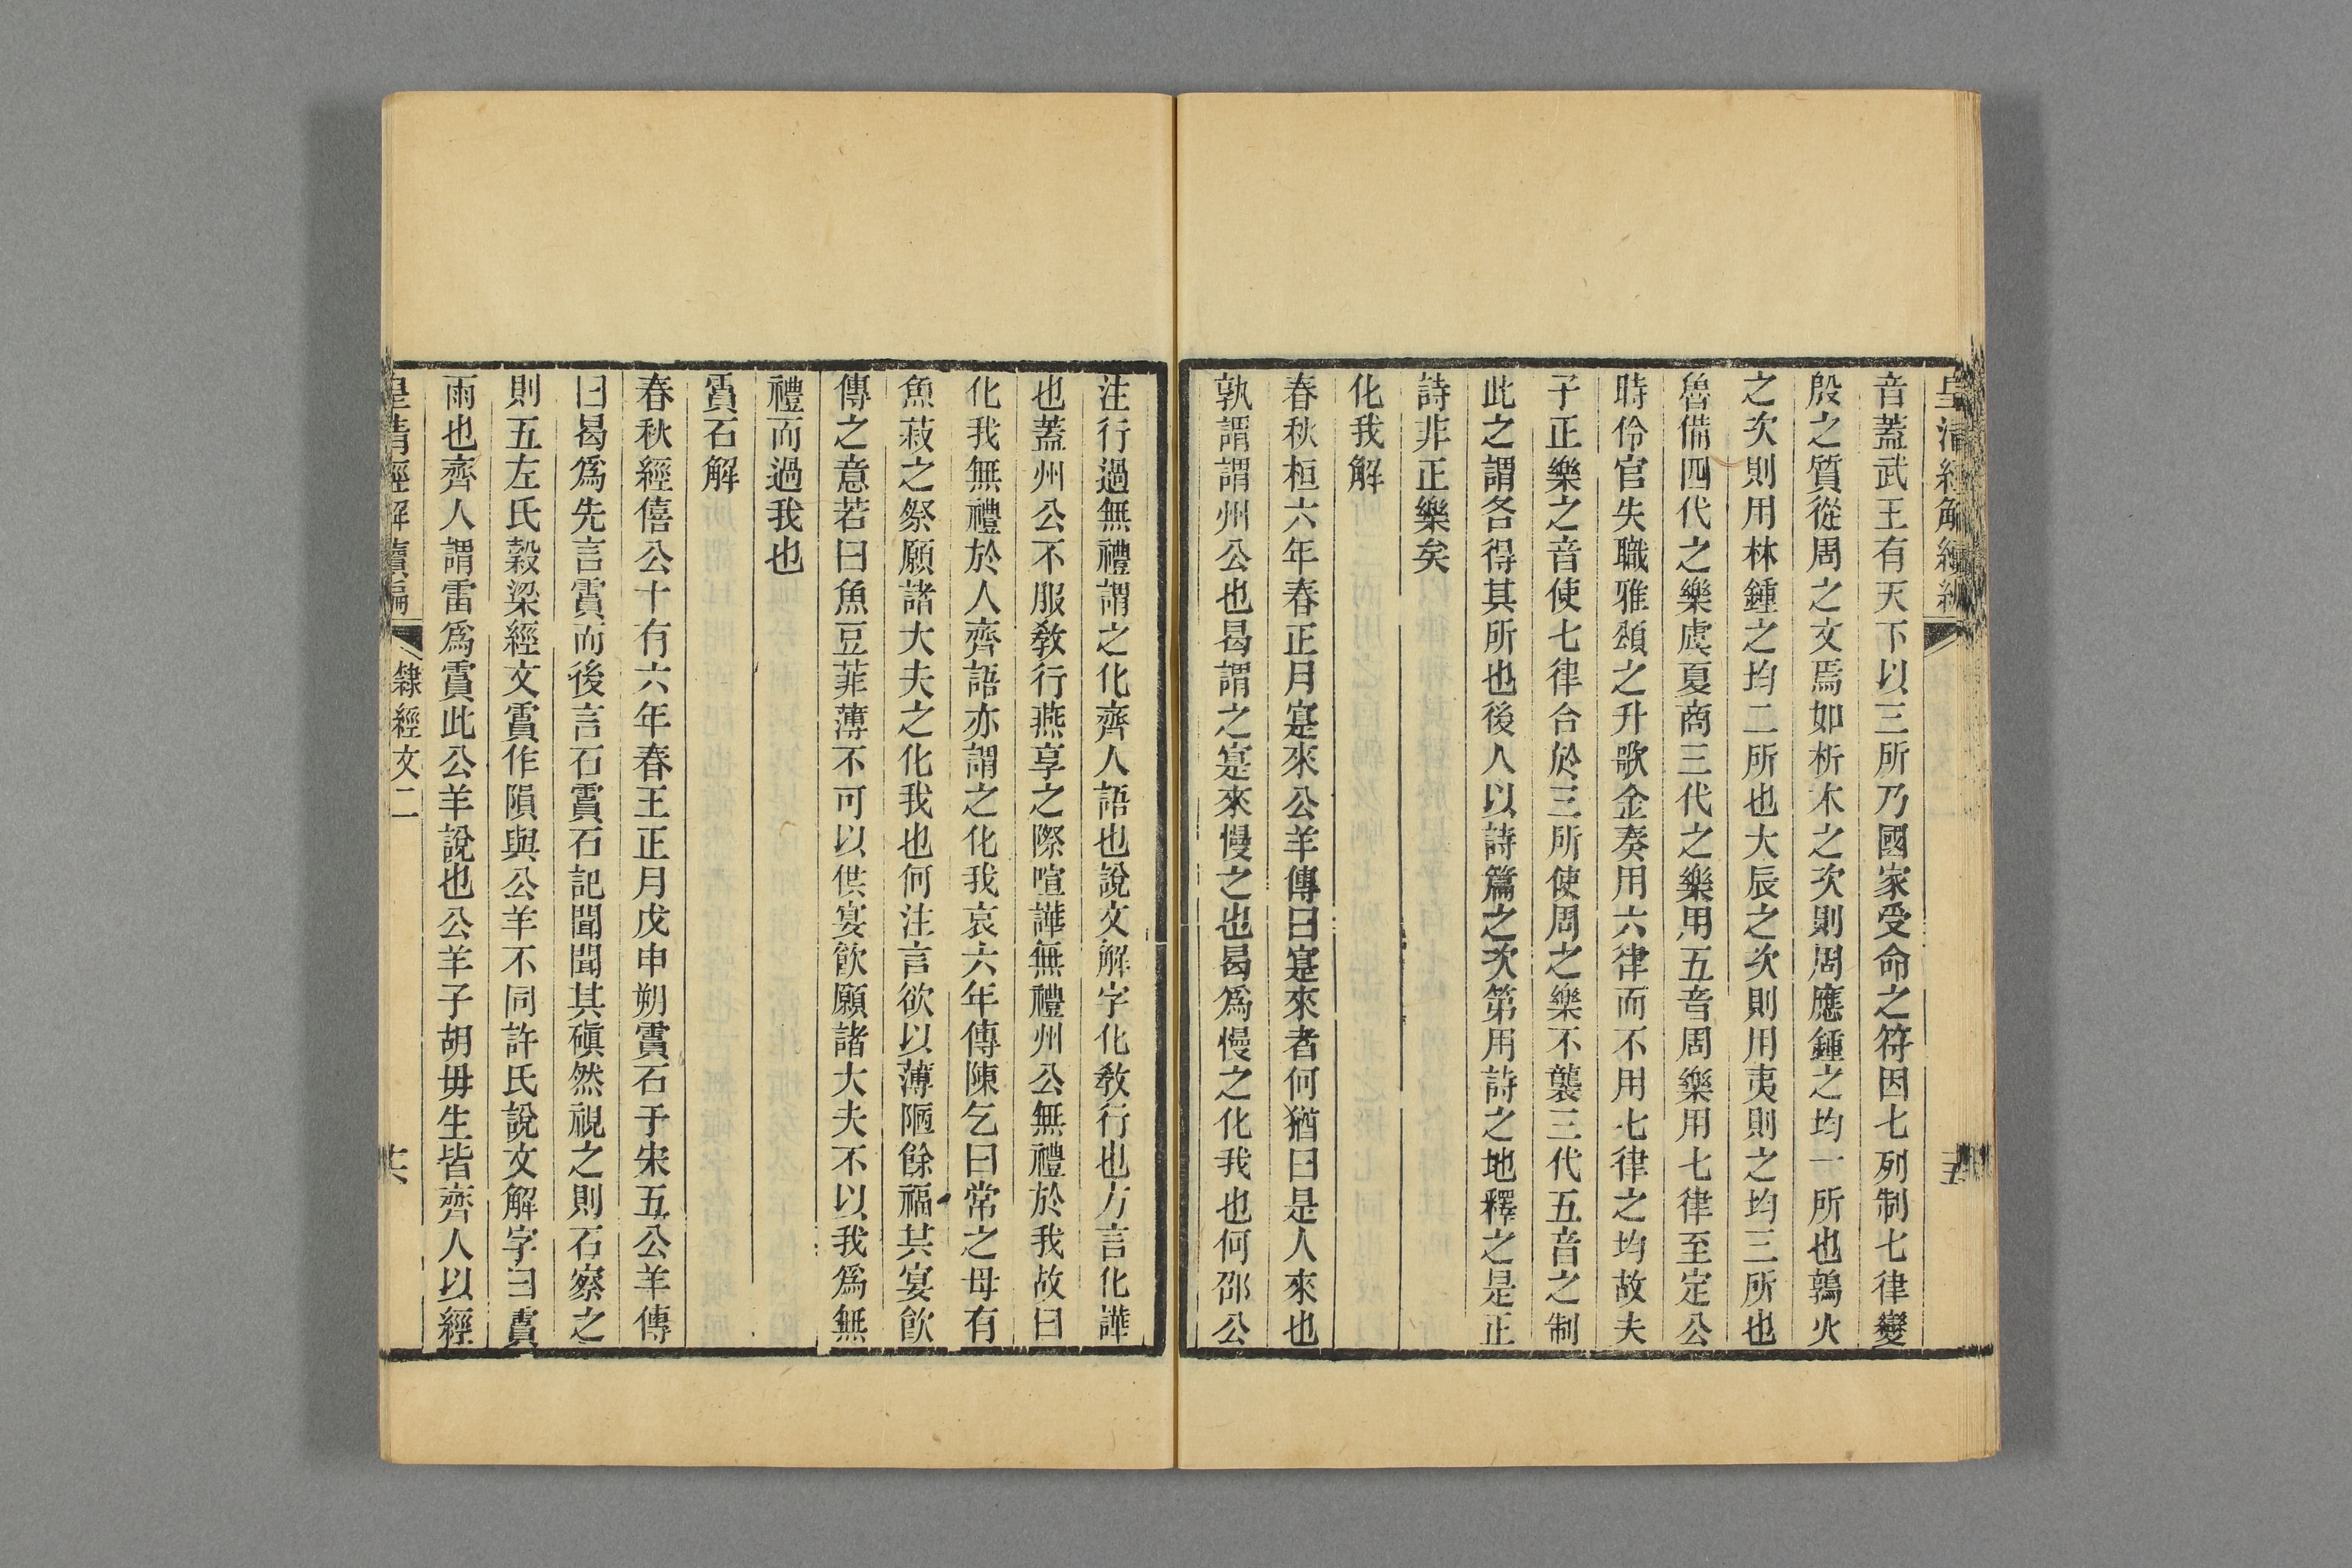 皇清經解續編
五
音蓋武王有天下以三所乃國家受命之符因七列制七律變
殷之質從周之文焉如析木之次則周應鍾之均一所也鶉火
之次則用林鍾之均二所也大辰之次則用夷則之均三所也
魯備四代之樂虞夏商三代之樂用五音周樂用七律至定公
時伶官失職雅頌之升歌金奏用六律而不用七律之均故夫
子正樂之音使七律合於三所使周之樂不襲三代五音之制
此之謂各得其所也後人以詩篇之次第用詩之地釋之是正
詩非正樂矣
化我解
春秋桓六年春正月寔來公羊傳曰寔來者何猶曰是人來也
孰謂謂州公也曷謂之寔來慢之也曷爲慢之化我也何邵公
注行過無禮謂之化齊人語也說文解字化教行也方言化譁
也蓋州公不服教行燕享之際喧譁無禮州公無禮於我故曰
化我無禮於人齊語亦謂之化我哀六年傳陳乞曰常之母有
魚菽之祭願諸大夫之化我也何注言欲以薄陋餘福共宴飲
傳之意若曰魚豆菲薄不可以供宴飲願諸大夫不以我爲無
禮而過我也
霣石解
春秋經僖公十有六年春王正月戊申朔霣石于宋五公羊傳
曰曷爲先言霣而後言石霣石記聞聞其磌然視之則石察之
則五左氏穀梁經文霣作隕與公羊不同許氏說文解字曰霣
雨也齊人謂雷爲霣此公羊說也公羊子胡毋生皆齊人以經
皇清經解續編
隸經文二
六